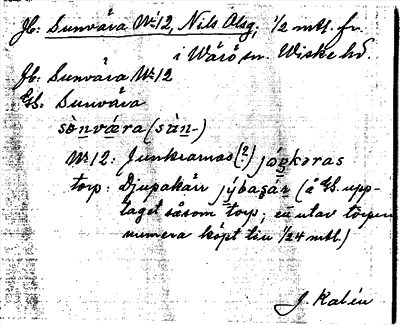 Jb: Sunvära No 12, Nils Olsg, 1/2 mtl. fr.
i Värö sn. Wiske hd.
Jb: Sunvära No 12
GS: Sunvära
sònværa (sàn-)
No 12: Junkramas (?) jóŋkoras
torp: Djupakärr (å GS. upp-
taget såsom torp; en utav torpen
numera köpt till 1/24 mtl.)
J. Kalén